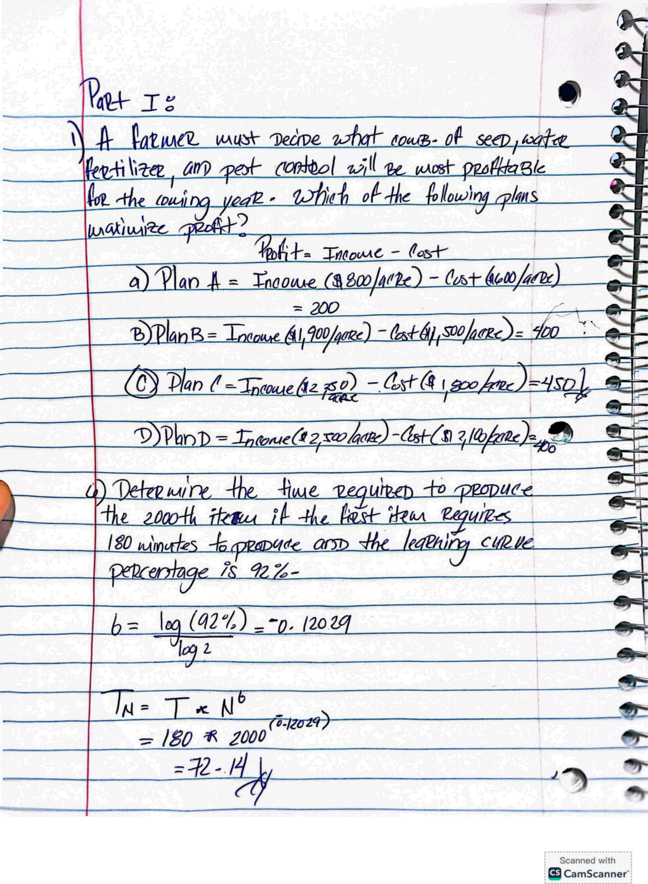 Part I:
1) A farmer must decide what comb. of seed, water
fertilizer, and pest control will be most profitable
for the coming year. Which of the following plans
maximize profit?
Profit = Income - Cost
a) Plan A = Income ($800/acre) - Cost ($600/acre)
= 200
B) Plan B = Income ($1,900/acre) - Cost ($1,500/acre) = 400
C) Plan C = Income ($2,250/acre) - Cost ($1,800/acre) = 450
D) Plan D = Income ($2,500/acre) - Cost ($2,100/acre) = 400
6) Determine the time required to produce
the 2000th item if the first item requires
180 minutes to produce and the learning curve
percentage is 92%-
b = log (92%) / log 2 = -0.12029
TN = T * N^b
= 180 * 2000^(-0.12029)
= 72.14
Scanned with
CS CamScanner